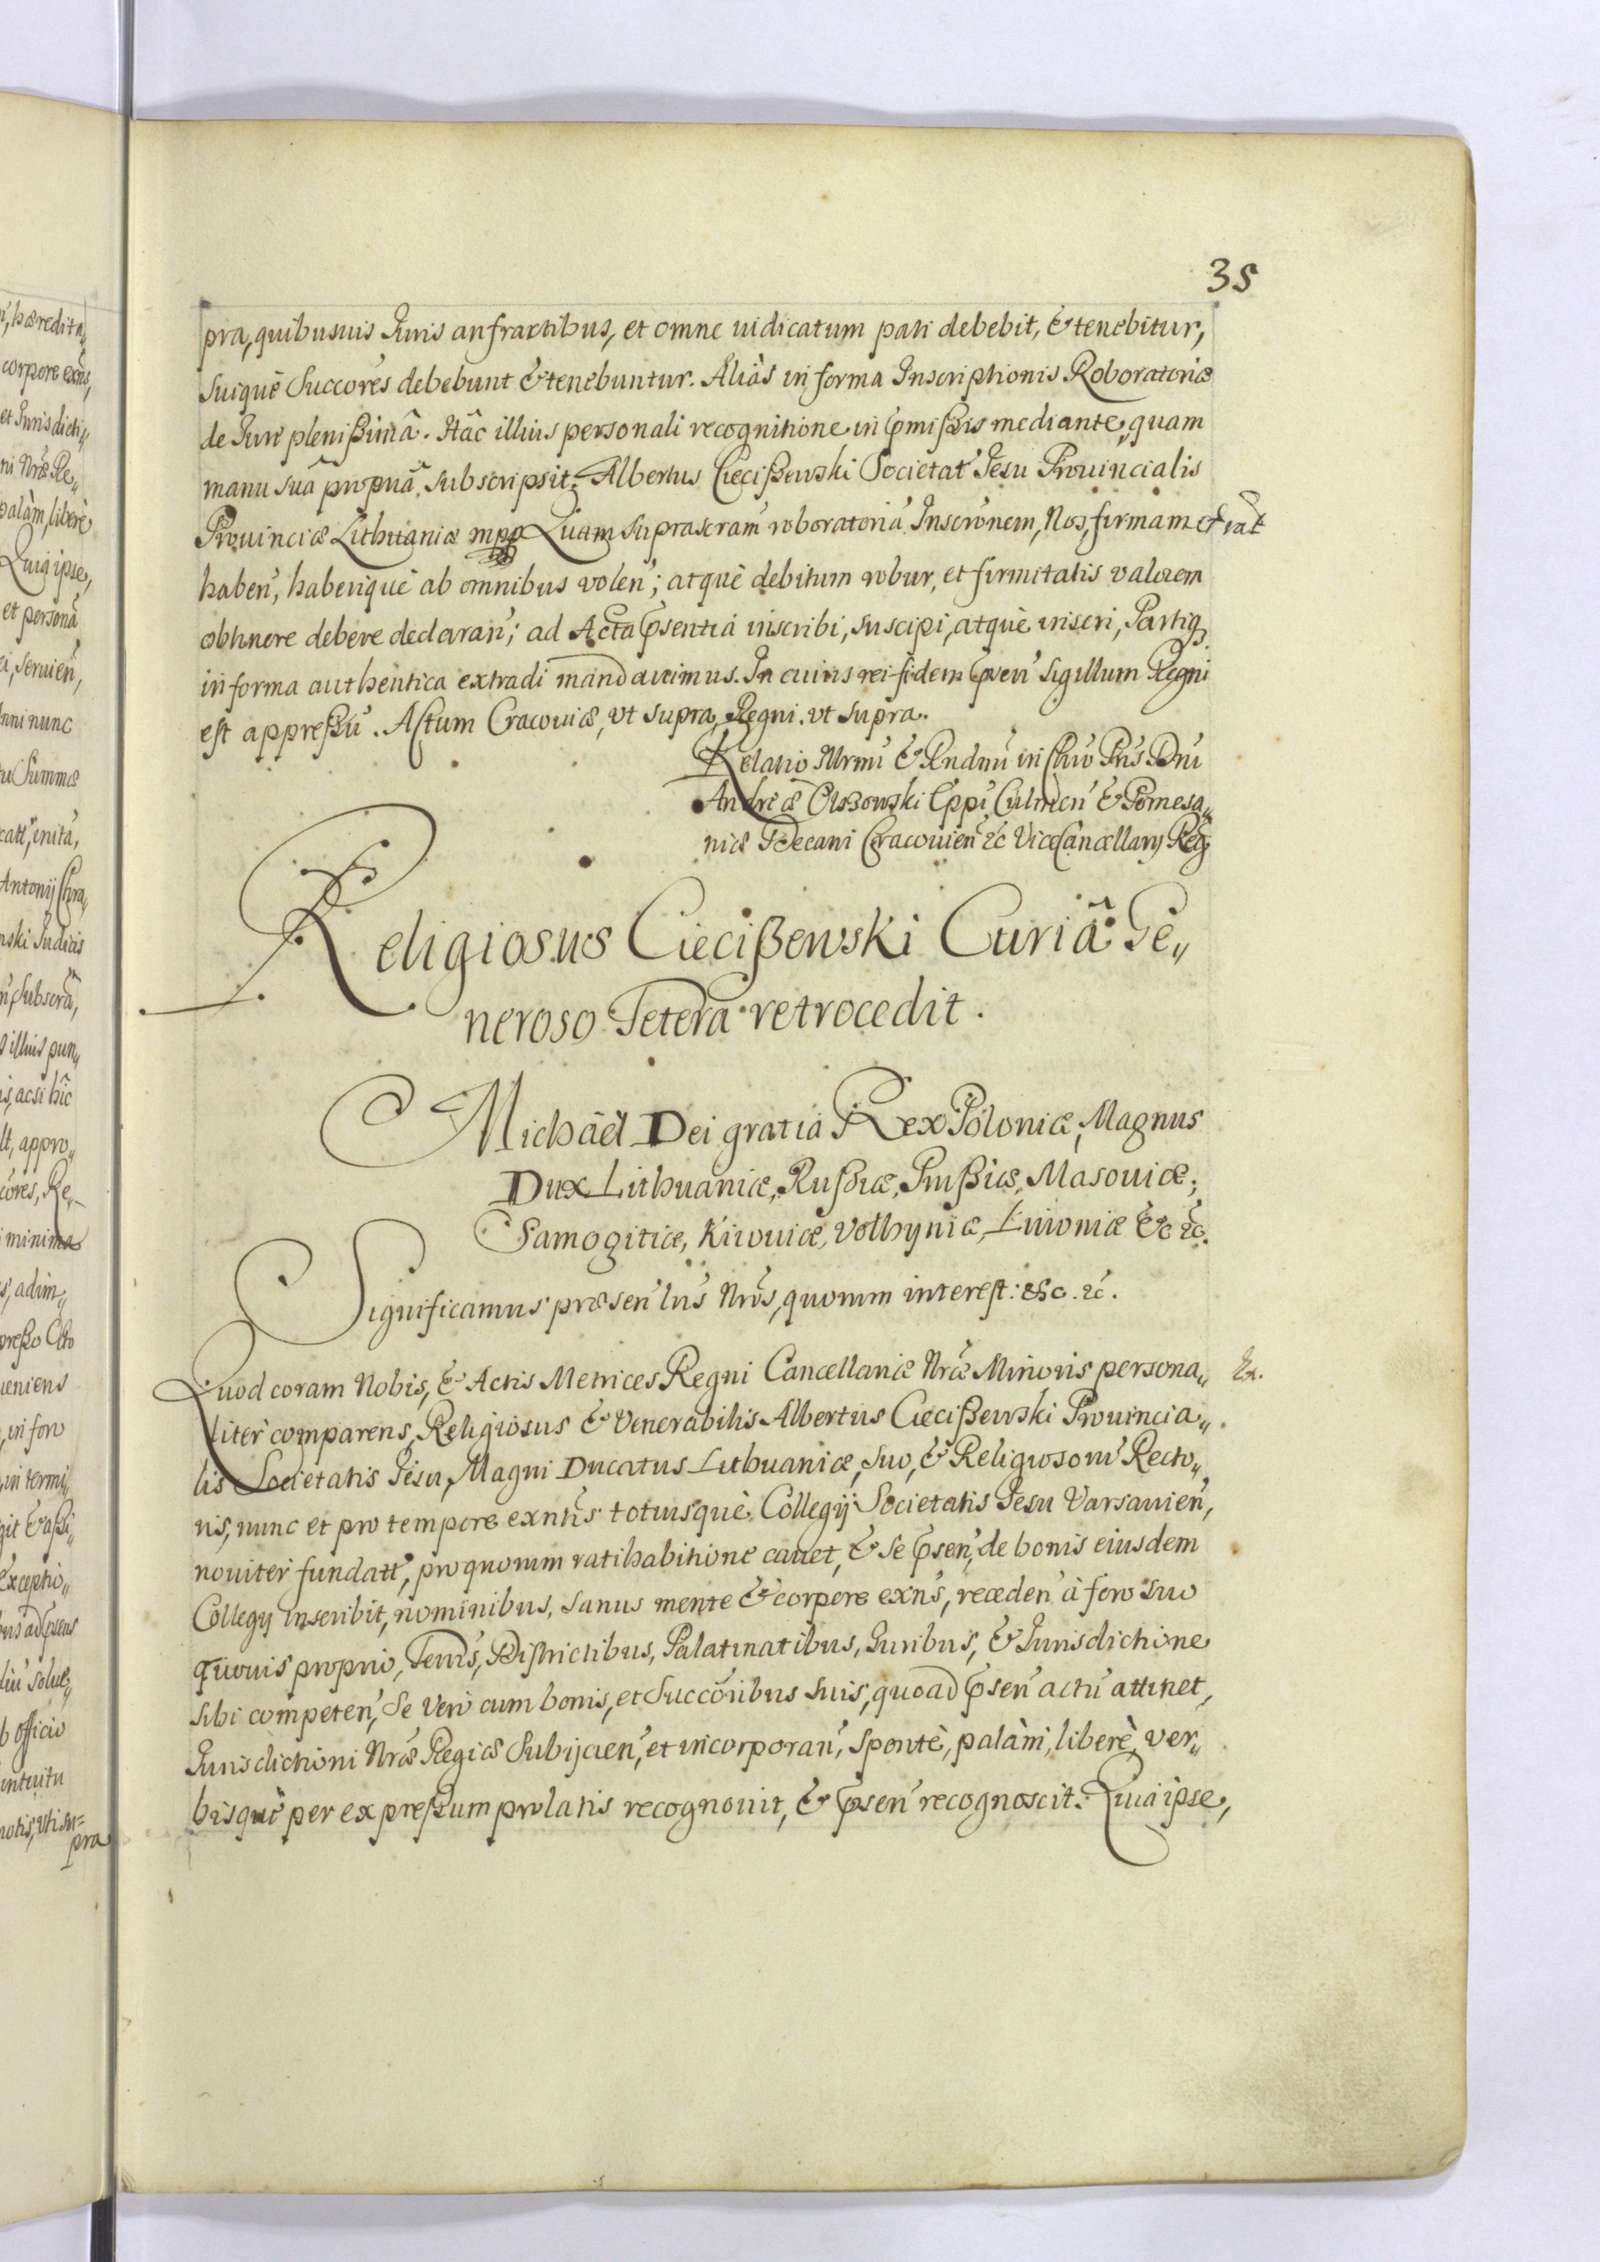 35
pra, quibusuis Iuris anfractibus, et omne iudicatum pati debebit, & tenebitur,
suiquè Succores debebunt & tenebuntur. Aliàs in forma Inscriptionis Roboratoriæ
de Iure plenißimâ. Hâc illius personali recognitione in pmißis mediante, quam
manu suâ propriâ subscripsit. Albertus Ciecißewski Societat Iesu Prouincialis
Prouinciæ Lithuaniæ mpp Quam suprascram roboratoria Inscronem, Nos, firmam et rat
haben, haberiquè ab omnibus volen; atquè debitum robur, et firmitatis valorem
obtinere debere declaran; ad Acta psentia inscribi, suscipi, atquè inseri, Partiq
in forma authentica extradi mandauimus. In cuius rei fidem psen Sigillum Regni
est appreßu. Actum Cracouiæ, vt supra, Regni. vt supra.
Relatio Illrmi & Rndmi in Chro Pris Dni
Andreæ Olszowski Eppi Culmen & Pomesa„
niæ Decani Cracouien &c ViceCancellarij Reg
Religiosus Ciecißewski Curiâ Ge„
neroso Tetera retrocedit.
Michaël Dei gratia Rex Poloniæ, Magnus
Dux Lithuaniæ, Rußiæ, Prußiæ, Masouiæ,
Samogitiæ, Kiiouiæ, Volhyniæ, Liuoniæ &c &c.
Significamus præsen lris Nris, quorum interest: &c. &c.
Quod coram Nobis, & Actis Metrices Regni Cancellariæ Nræ Minoris persona„
liter comparens, Religiosus & Venerabilis Albertus Ciecißewski Prouincia„
lis Societatis Iesu, Magni Ducatus Lithuaniæ, suo, & Religiosorum Recto„
ris, nunc et pro tempore exntis totiusquè Collegij Societatis Iesu Varsauien,
nouiter fundatt, pro quorum ratihabitione cauet, & se psen, de bonis eiusdem
Collegij inscribit, nominibus, sanus mente & corpore exns, receden à foro suo
quouis proprio, Terris, Districtibus, Palatinatibus, Iuribus, & Iurisdictione
sibi competen, Se vero cum bonis, et Succoribus suis, quoad psen actu attinet,
Iurisdictioni Nræ Regiæ Subijcien, et incorporan, spontè, palàm, liberè, ver„
bisquè per expreßum prolatis recognouit, & psen recognoscit. Quia ipse,